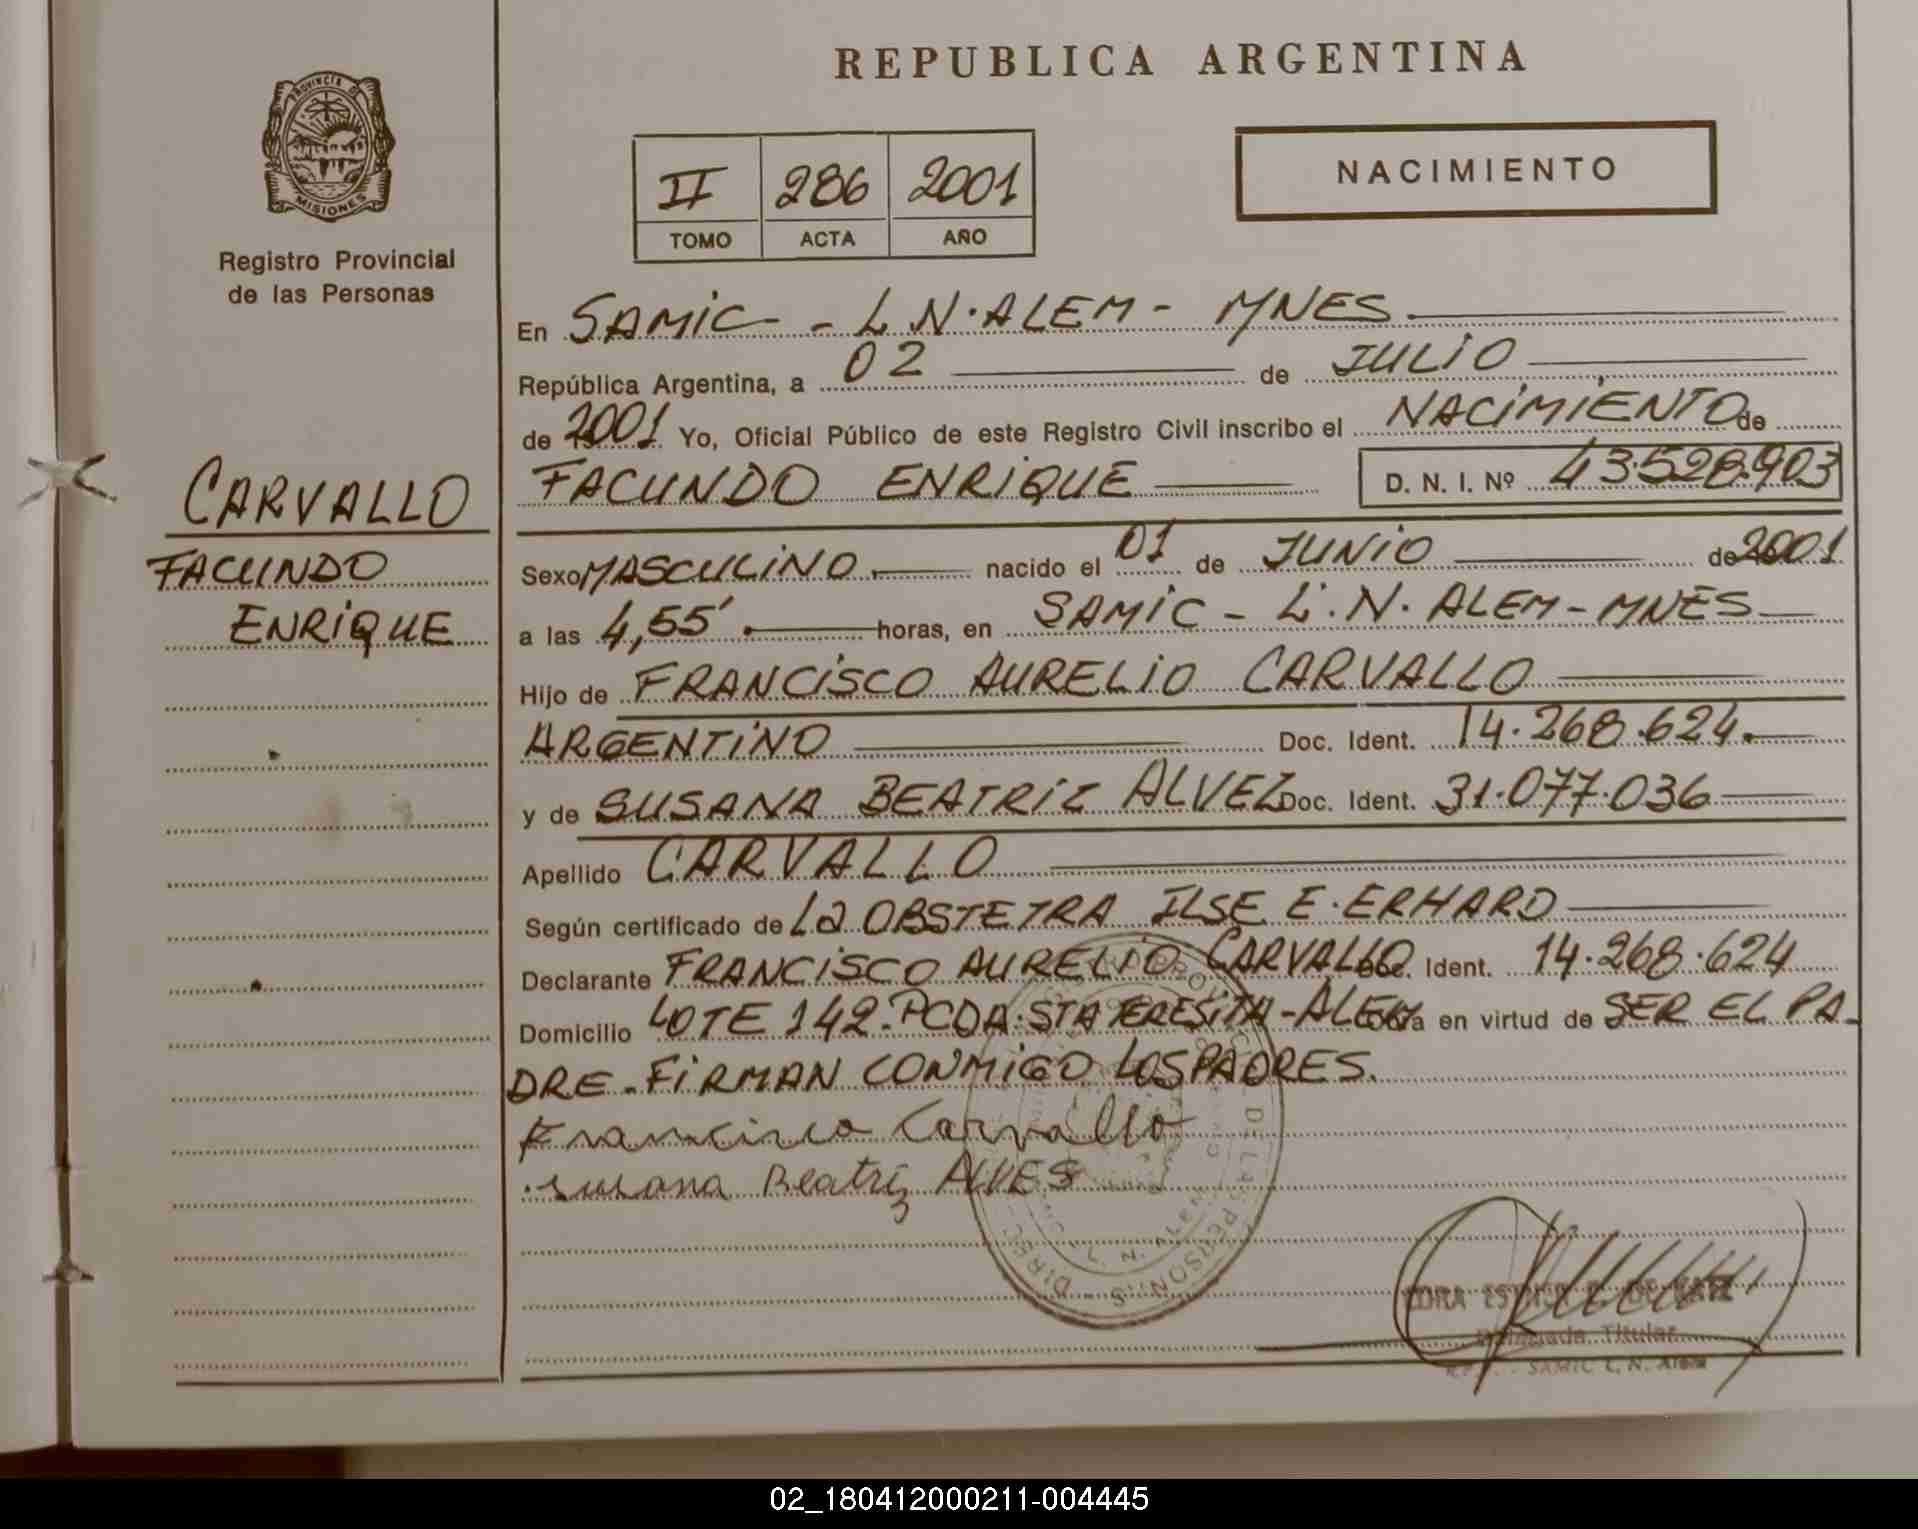 REPUBLICA ARGENTINA
PROVINCIA DE
MISIONES
Registro Provincial
de las Personas
II 286 2001
TOMO ACTA AÑO
NACIMIENTO
CARVALLO
FACUNDO
ENRIQUE
En SAMIC - L.N. ALEM - MNES.
República Argentina, a 02 de JULIO
de 2001 Yo, Oficial Público de este Registro Civil inscribo el NACIMIENTO de
FACUNDO ENRIQUE D. N. I. Nº 43.528.903
Sexo MASCULINO. nacido el 01 de JUNIO de 2001
a las 4,55' horas, en SAMIC - L.N. ALEM - MNES
Hijo de FRANCISCO AURELIO CARVALLO
ARGENTINO Doc. Ident. 14.268.624.
y de SUSANA BEATRIZ ALVEZ Doc. Ident. 31.077.036
Apellido CARVALLO
Según certificado de La OBSTETRA ILSE E. ERHARD
Declarante FRANCISCO AURELIO CARVALLO Doc. Ident. 14.268.624
Domicilio LOTE 142-PCDA. STA TERESITA-ALEM Obra en virtud de SER EL PA-
DRE - FIRMAN CONMIGO LOS PADRES.
Francisco Carvallo
Susana Beatriz ALVES
L. N. ALEM
DE LAS PERSONAS - DIREC
Delegada Titular
SAMIC L. N. Alem
02_180412000211-004445